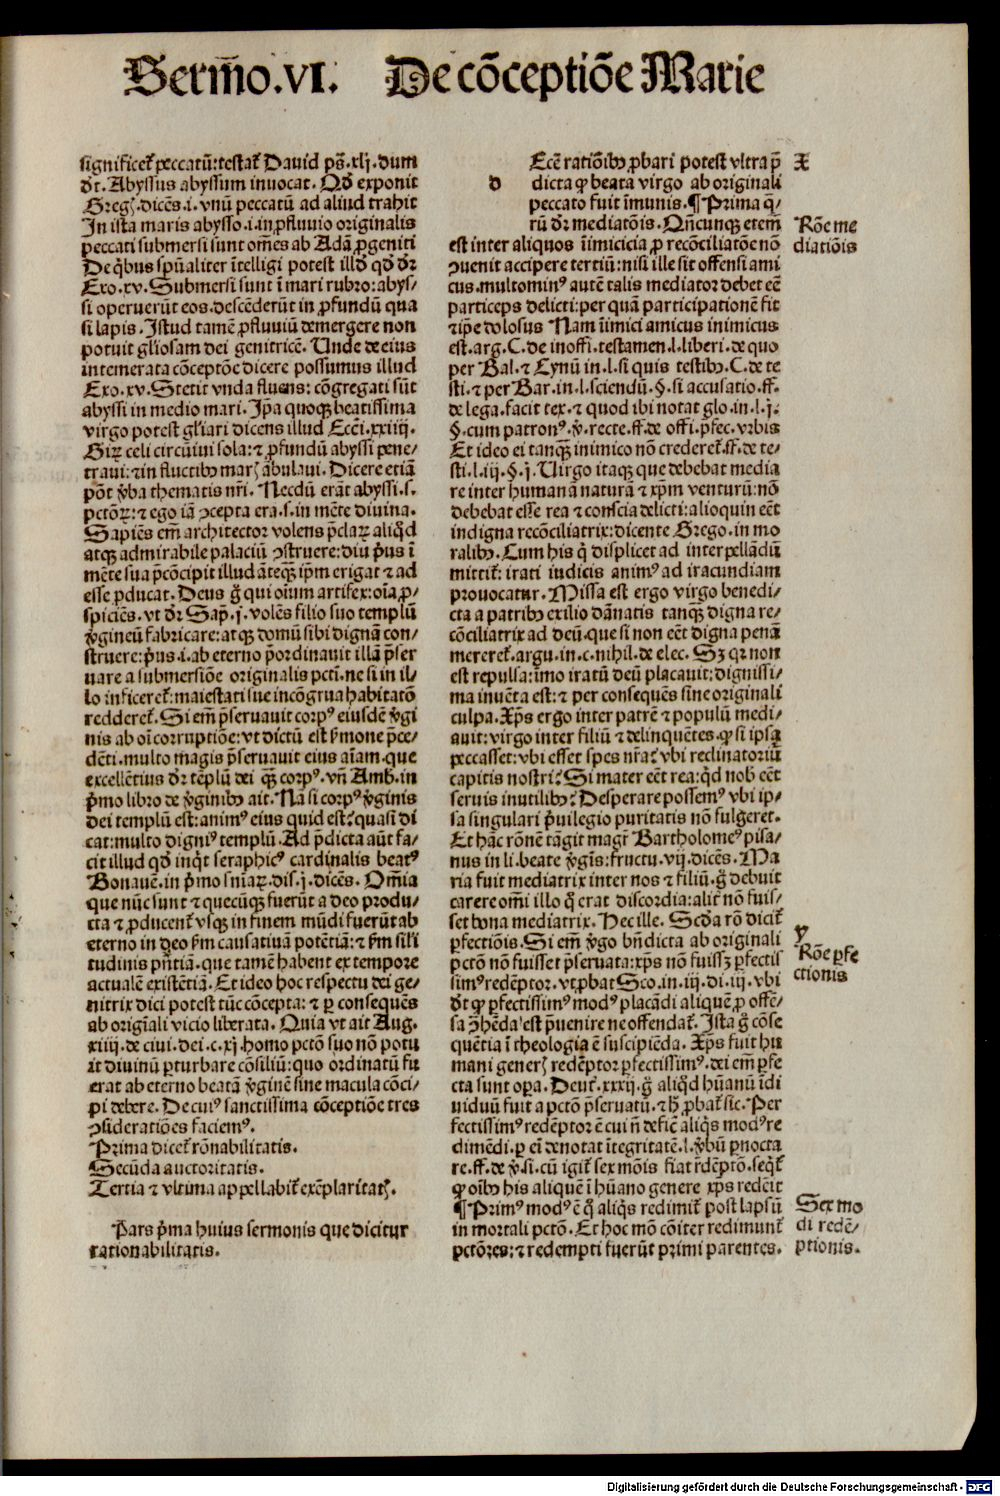 Sermo̅.VI. De co̅ceptio̅e Marie
significet᷑ peccatu̅:testat᷑ Dauid ps̅.xlj.dum
dr̅. Abyssus abyssum inuocat. Qd̅ exponit
Greg. dice̅s.i.vnu̅ peccatu̅ ad aliud trahit
In ista maris abysso.i.in ꝓfluuio originalis
peccati submersi sunt om̅es ab Ada̅ ꝓgeniti
De q̅bus spu̅aliter i̅telligi potest illd̅ qd̅ dr̅
Exo.xv. Submersi sunt i̅ mari rubro:abys/
si operueru̅t eos.desce̅deru̅t in ꝓfundu̅ qua
si lapis. Istud tame̅ ꝓfluuiu̅ demergere non
potuit gl̅iosam dei genitrice̅. Unde de eius
intemerata co̅ceptio̅e dicere possumus illud
Exo.xv. Stetit vnda fluens: co̅gregati su̅t
abyssi in medio mari. Ip̅a quoqꝫ beatissima
virgo potest gl̅iari dicens illud Ecci̅.xxiiij.
Giꝝ celi circu̅iui sola:⁊ ꝓfundu̅ abyssi pene/
traui:⁊ in fluctibꝰ mar̅ a̅bulaui. Dicere etia̅
po̅t v̅ba thematis nr̅i. Necdu̅ era̅t abyssi.s.
pcto̅ꝝ:⁊ ego ia̅ ꝯcepta era̅.s.in me̅te diuina.
Sapie̅s em̅ architector volens p̅claꝝ aliq̅d
atqꝫ admirabile palaciu̅ ꝯstruere:diu p̅us i̅
me̅te sua p̅co̅cipit illud a̅teqꝫ̅ ip̅m erigat ⁊ ad
esse ꝓducat. Deus g̅ qui oi̅um artifex:oi̅a ꝓ/
spicie̅s.vt dr̅ Sap̅.j. vole̅s filio suo templu̅
v̅gineu̅ fabricare:atqꝫ domu̅ sibi digna̅ con/
struere:p̅us.i.ab eterno p̅ordinauit illa̅ p̅ser
uare a submersio̅e originalis pcti̅.ne si in il/
lo inficeret᷑:maiestati sue inco̅grua habitato̅
redderet᷑. Si em̅ p̅seruauit corpꝰ eiusde̅ v̅gi
nis ab oi̅ corruptio̅e:vt dictu̅ est s̅mone p̅ce/
de̅ti.multo magis p̅seruauit eius ai̅am.que
excelle̅tius dr̅ te̅plu̅ dei qꝫ̅ corpꝰ.vn̅ Amb̅.in
p̅mo libro de v̅ginibꝰ ait. Na̅ si corpꝰ v̅ginis
dei templu̅ est:animꝰ eius quid est?quasi di
cat:multo dignꝰ templu̅. Ad p̅dicta au̅t fa/
cit illud qd̅ inq̅t seraphicꝰ cardinalis beatꝰ
Bonaue̅.in p̅mo sn̅iaꝝ.dis.j.dice̅s. Om̅ia
que nu̅c sunt ⁊ quecu̅qꝫ fueru̅t a deo produ/
cta ⁊ ꝓducent᷑ vsqꝫ in finem mu̅di fueru̅t ab
eterno in deo s̅m causatiua̅ pote̅tia̅:⁊ s̅m sili̅
tudinis pn̅tia̅.que tame̅ habent ex tempore
actuale̅ existe̅tia̅. Et ideo hoc respectu dei ge/
nitrix dici potest tu̅c co̅cepta:⁊ ꝑ conseque̅s
ab origi̅ali vicio liberata. Quia vt ait Aug.
xiiij.de ciui.dei.c.xj.homo pcto̅ suo no̅ potu
it diuinu̅ ꝑturbare co̅siliu̅:quo ordinatu̅ fu
erat ab eterno beata̅ v̅gine̅ sine macula co̅ci/
pi debere. De cuiꝰ sanctissima co̅ceptio̅e tres
ꝯsideratio̅es faciemꝰ.
Prima dicet᷑ ro̅nabilitatis.
Secu̅da auctoritatis.
Tertia ⁊ vltima appellabit᷑ exe̅plaritat̅.
Pars p̅ma huius sermonis que dicitur
rationabilitatis.
d
Ecce̅ ratio̅ibꝰ ꝓbari potest vltra p̅
dicta ꝙ beata virgo ab originali
peccato fuit i̅munis. ¶ Prima q̅/
ru̅ dr̅ mediato̅is. Qn̅cunqꝫ etem̅
est inter aliquos i̅imicicia ꝓ reco̅ciliato̅e no̅
ꝯuenit accipere tertiu̅:nisi ille sit offensi ami
cus.multominꝰ aute̅ talis mediator debet ee̅
particeps delicti:per qua̅ participatione̅ fit
⁊ ip̅e dolosus Nam i̅imici amicus inimicus
est.arg.C.de inoffi.testamen.l.liberi.de quo
per Bal.⁊ Cynu̅ in.l.si quis testibꝰ.C.de te
sti.⁊ per Bar.in.l.sciendu̅.§.si accusatio.ff.
de lega.facit tex.⁊ quod ibi notat glo.in.l.j.
§.cum patronꝰ.v̅.recte.ff.de offi.p̅fec.vrbis
Et ideo ei tanqꝫ̅ inimico non crederet᷑.ff.de te/
sti.l.iij.§.j. Uirgo itaqꝫ que debebat media
re inter humana̅ natura̅ ⁊ xp̅m venturu̅:no̅
debebat esse rea ⁊ conscia delicti:alioquin ee̅t
indigna reco̅ciliatrix:dicente Grego.in mo
ralibꝰ. Cum his q̅ displicet ad interpella̅du̅
mittit᷑:irati iudicis animꝰ ad iracundiam
prouocatur. Missa est ergo virgo benedi/
cta a patribꝰ exilio da̅natis tanqꝫ̅ digna re/
co̅ciliatrix ad deu̅.que si non ee̅t digna pena̅
mereret᷑.argu.in.c.nihil.de elec. Sꝫ qꝛ non
est repulsa:i̅mo iratu̅ deu̅ placauit:dignissi/
ma inue̅ta est:⁊ per conseque̅s sine originali
culpa. Xp̅s ergo inter patre̅ ⁊ populu̅ medi/
auit:virgo inter filiu̅ ⁊ delinque̅tes.ꝙ si ipsa
peccasset:vbi esset spes nr̅a?vbi reclinatoriu̅
capitis nostri?Si mater ee̅t rea:q̅d nob̅ ee̅t
seruis inutilibꝰ?Desperare possemꝰ vbi ip/
sa singulari p̅uilegio puritatis no̅ fulgeret.
Et ha̅c ro̅ne̅ ta̅git magr̅ Bartholomeꝰ pisa/
nus in li.beate v̅gi̅s:fructu.vij.dice̅s. Ma
ria fuit mediatrix inter nos ⁊ filiu̅.g̅ debuit
carere om̅i illo q̅ erat discordia:alit̅ no̅ fuis/
set bona mediatrix. Hec ille. Secd̅a ro̅ dicit᷑
ꝑfectio̅is. Si em̅ v̅go bn̅dicta ab originali
pcto̅ no̅ fuisset p̅seruata:xp̅s no̅ fuissꝫ ꝑfectis
simꝰ rede̅ptor.vt ꝓbat Sco.in.iij.di.iij.vbi
dt̅ ꝙ ꝑfectissimꝰ modꝰ placa̅di alique̅ ꝓ offe̅/
sa ꝯ̅he̅da est p̅uenire ne offendat᷑. Ista g̅ co̅se
que̅tia i̅ theologia e̅ suscipie̅da. Xp̅s fuit hu
mani gener̅ rede̅ptor ꝑfectissimꝰ.dei em̅ ꝑfe
cta sunt oꝑa. Deut̅.xxxij.g̅ aliq̅d hu̅anu̅ i̅di
uiduu̅ fuit a pcto̅ p̅seruatu̅.⁊ h̅ ꝓbat᷑ sic. Per
fectissimꝰ rede̅ptor e̅ cui n̅ defic̅ aliq̅s modꝰ re
dime̅di.ꝑ ei̅ denotat i̅tegritate̅.l.v̅bu̅ ꝑnocta
re.ff.de v̅.si.cu̅ igit᷑ sex mo̅is fiat rede̅pto̅.seq̅t᷑
ꝙ oi̅bꝰ his alique̅ i̅ hu̅ano genere xp̅s rede̅it
¶ Primꝰ modꝰ e̅ q̅ aliq̅s redimit᷑ post lapsu̅
in mortali pcto̅. Et hoc mo̅ co̅iter redimunt᷑
pcto̅res:⁊ redempti fueru̅t primi parentes.
X
Ro̅e me
diatio̅is
y
Ro̅e ꝑfe
ctionis
Sex mo
di rede̅/
ptionis.
Digitalisierung gefördert durch die Deutsche Forschungsgemeinschaft - DFG